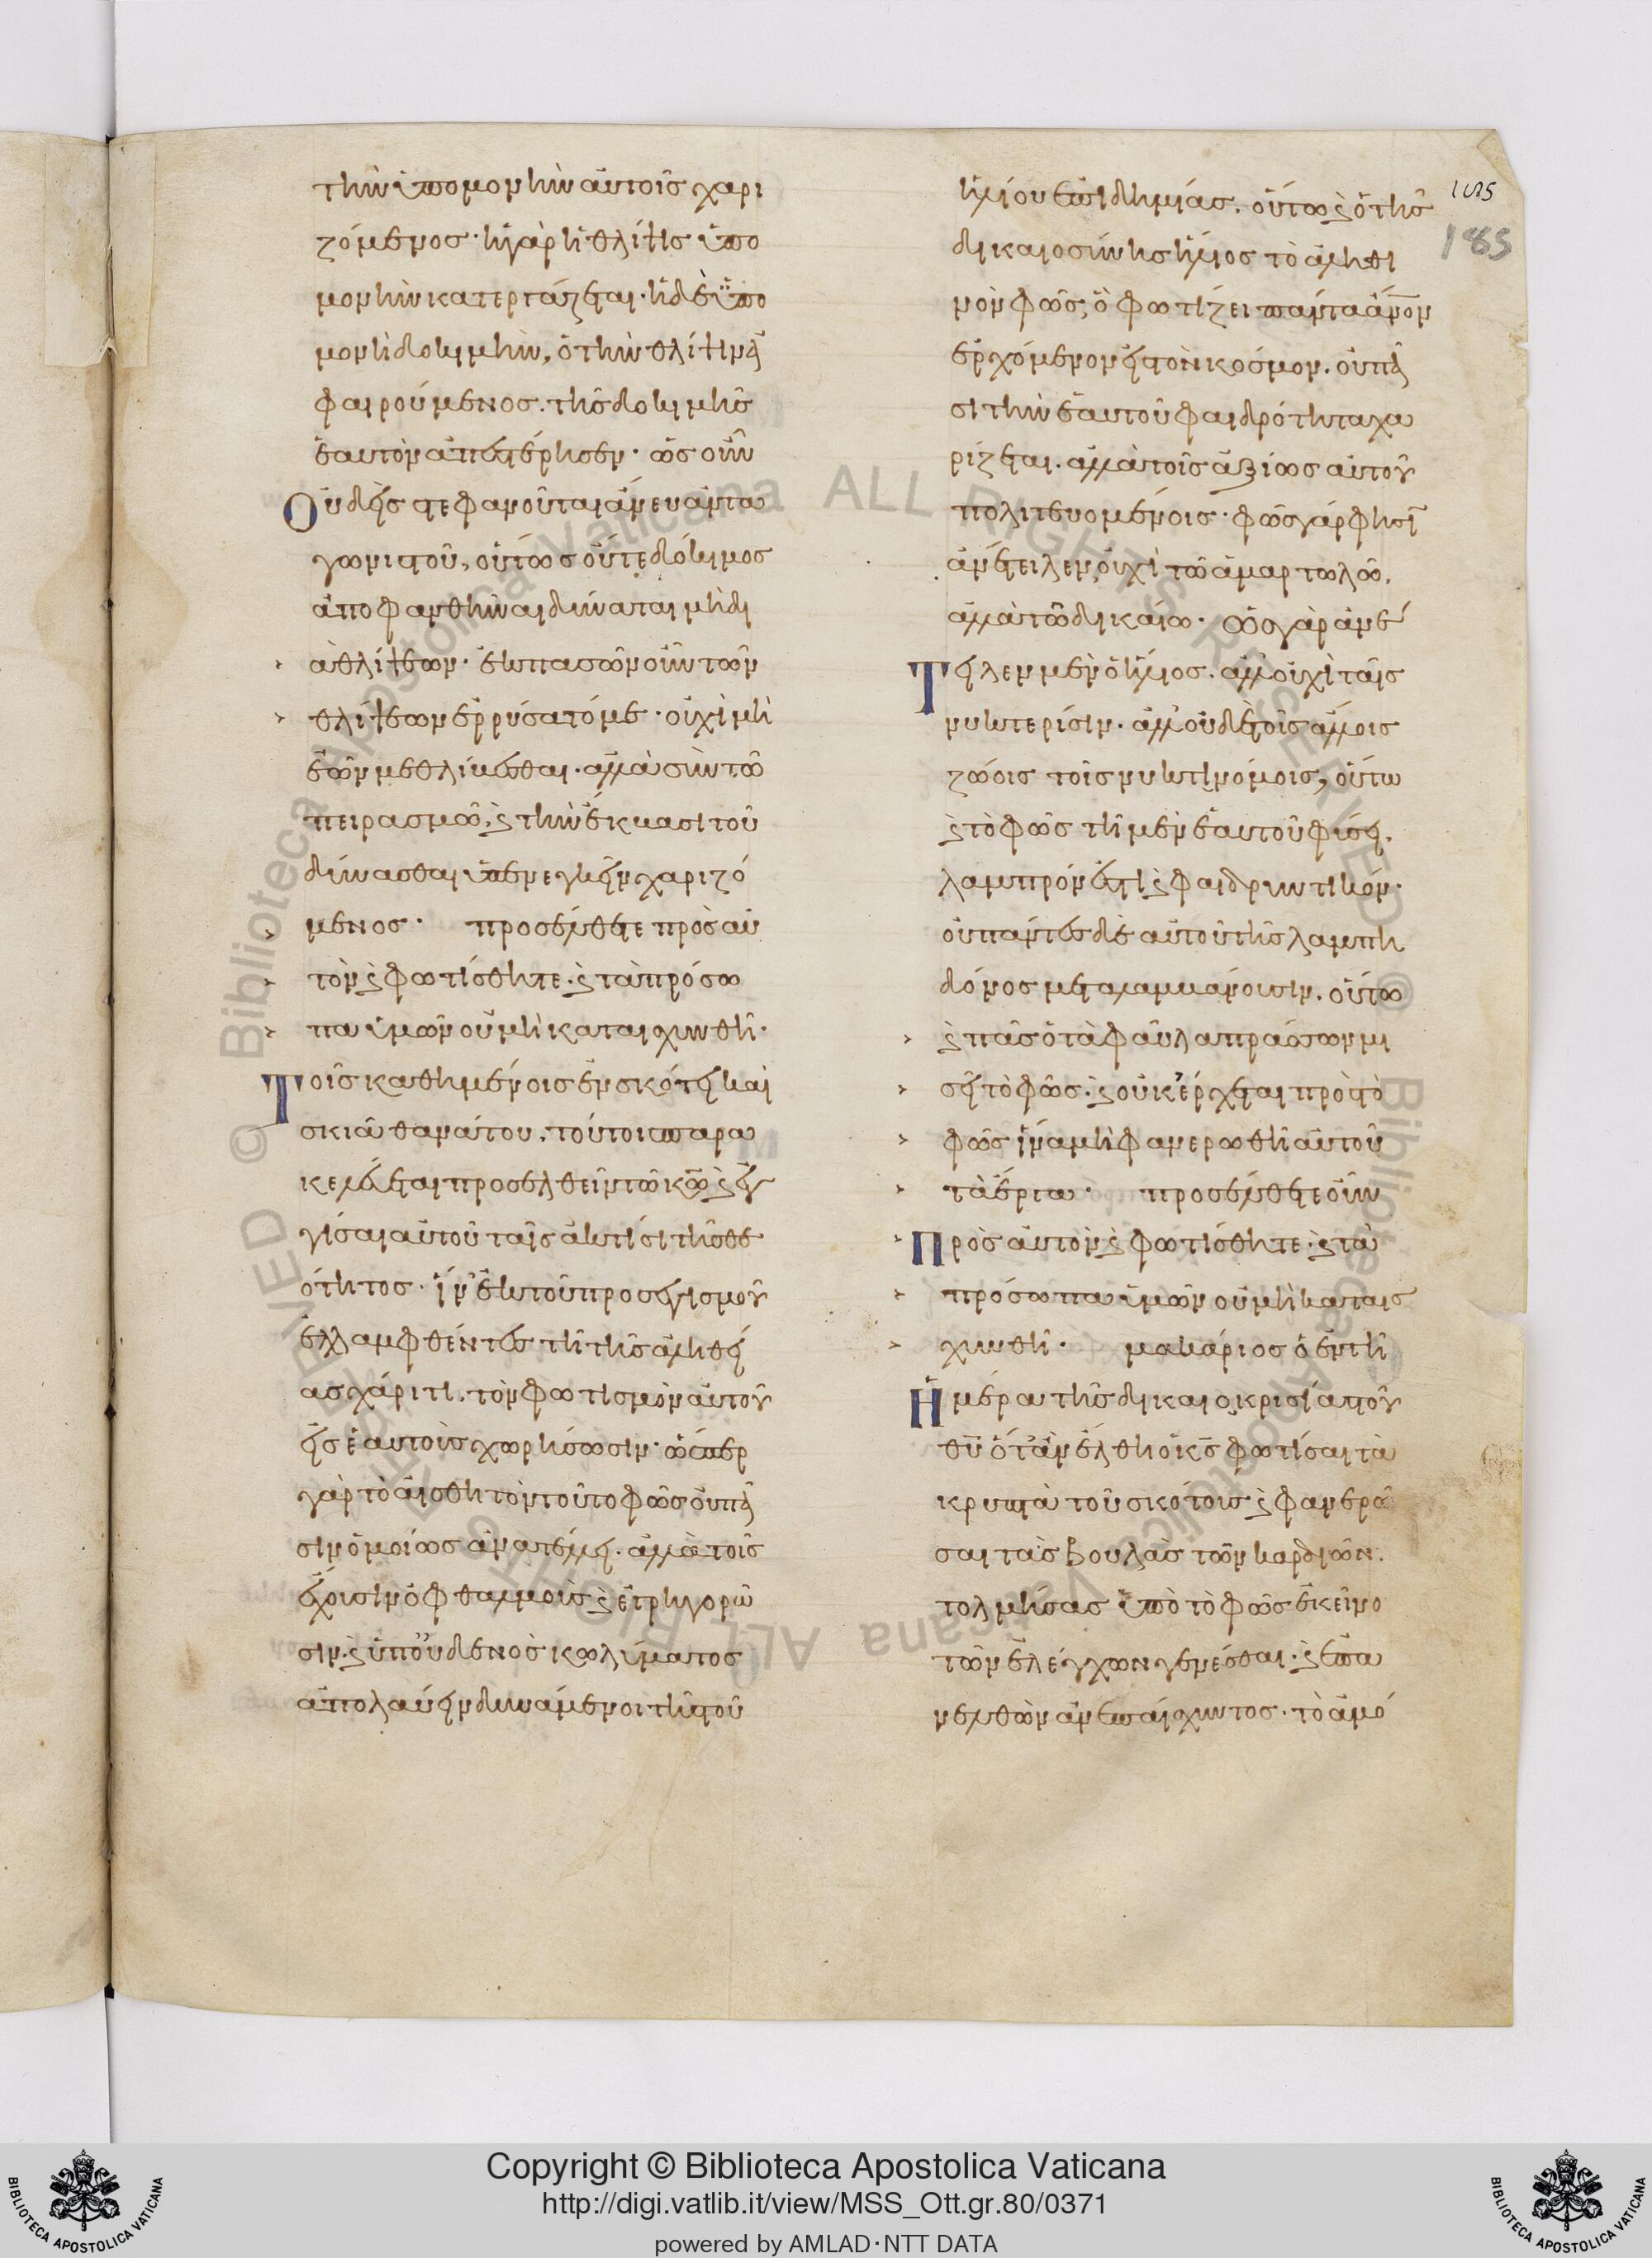 τὴν ὑπομονὴν αὐτοῖς χαρι
ζόμενος· ἡ γὰρ ἡ θλίψις ὑπο
μονὴν κατεργάζεται· ἡ δὲ ὑπο
μονὴ δοκιμὴν, ὁ τὴν θλίψιν ἀ
φαιρούμενος. τῆς δοκιμῆς
ἑαυτὸν ἀπεστέρησεν· ὡς οὖν
Οὐδεὶς στεφανοῦται ἄνευ ἀντα
γωνιστοῦ, οὕτως οὔτε δόκιμος
ἀποφανθῆναι δύναται μὴ δι
ὰ θλίψεων· ἐκ πασῶν οὖν τῶν
θλίψεων ἐρρύσατό με· οὐχὶ μὴ
ἐῶν με θλίβεσθαι. ἀλλὰ σὺν τῶ
πειρασμῶ, ϗ τὴν ἔκβασι τοῦ
δύνασθαι ὑπενεγκεῖν χαριζό
μενος· προσέλθετε πρὸς αὐ
τὸν ϗ φωτίσθητε. ϗ τὰ πρόσω
πα ὑμῶν οὐ μὴ καταισχυνθῆ·
Τοῖς καθημένοις ἐν σκότει καὶ
σκιᾶ θανάτου, τούτοι παρα
κελεύεται προσελθεῖν τῶ κω ϗ ἐγ
γίσαι αὐτοῦ ταῖς ἀκτίσι τῆς θε
ότητος· ἵν' ἐκ τοῦ προσεγγισμοῦ
ἐλλαμφθέντες τῆ τῆς ἀληθεί
ας χάριτι. τὸν φωτισμὸν αὐτοῦ
εἰς ἑαυτοὺς χωρήσωσιν· ὥσπερ
γὰρ τὸ αἰσθητὸν τοῦτο φῶς οὐ πᾶ
σιν ὁμοίως ἀνατέλλει. ἀλλὰ τοῖς
ἔχουσιν ὀφθαλμοὺς ϗ ἐγρηγορῶ
σιν. ϗ ὑπ' οὐδενὸς κωλύματος
ἀπολαύειν δυναμένοι τῆς τοῦ
ἡλίου ἐπιδημίας. οὕτως ϗ ὁ τῆς
δικαιοσύνης ἥλιος τὸ ἀληθι
νὸν φῶς, ὃ φωτίζει πάντα ἄνον
ἐρχόμενον εἰς τὸν κόσμον. οὐ πᾶ
σι τὴν ἑαυτοῦ φαιδρότητα χα
ρίζεται. ἀλλὰ τοῖς ἀξίως αὐτοῦ
πολιτευομένοις· φῶς γάρ φησὶ
ἀνέτειλεν, οὐχὶ τῶ ἁμαρτωλῶ.
ἀλλὰ τῶ δικαίω· ὡς γὰρ ἀνέ
Τειλεν μὲν ὁ ἥλιος. ἀλλ' οὐχὶ ταῖς
νυκτερίσιν. ἀλλ' οὐδὲ τοῖς ἄλλοις
ζώοις τοῖς νυκτινόμοις, οὕτω
ϗ τὸ φῶς τῆ μὲν ἑαυτοῦ φύσει.
λαμπρόν ἐστι ϗ φαιδρυντικόν·
οὐ πάντες δὲ αὐτοῦ τῆς λαμπη
δόνος μεταλαμβάνουσιν. οὕτω
ϗ πᾶς ὁ τὰ φαῦλα πράσσων μι
σεῖ τὸ φῶς. ϗ οὐκ ἔρχεται πρὸς τὸ
φῶς ἵνα μὴ φανερωθῆ αὐτοῦ
τὰ ἔργα· προσέλθετε οὖν
Πρὸς αὐτὸν ϗ φωτίσθητε. ϗ τὰ
πρόσωπα ὑμῶν οὐ μὴ καταισ
χυνθῆ· μακάριος ὁ ἐν τῆ
Ἡμέρα τῆς δικαιοκρισίας τοῦ
θυ ὅτ' ἂν ἔλθη ὁ κς φωτίσαι τὰ
κρυπτὰ τοῦ σκότους ϗ φανερῶ
σαι τὰς βουλὰς τῶν καρδιῶν.
τολμήσας ὑπὸ τὸ φῶς ἐκεῖνο
τῶν ἐλέγχων γενέσθαι· ϗ ἐπα
νελθὼν ἀνεπαίσχυντος. τὸ ἀμό
185
© Biblioteca Apostolica Vaticana ALL RIGHTS RESERVED
Copyright © Biblioteca Apostolica Vaticana
http://digi.vatlib.it/view/MSS_Ott.gr.80/0371
powered by AMLAD·NTT DATA
BIBLIOTECA APOSTOLICA VATICANA
BIBLIOTECA APOSTOLICA VATICANA